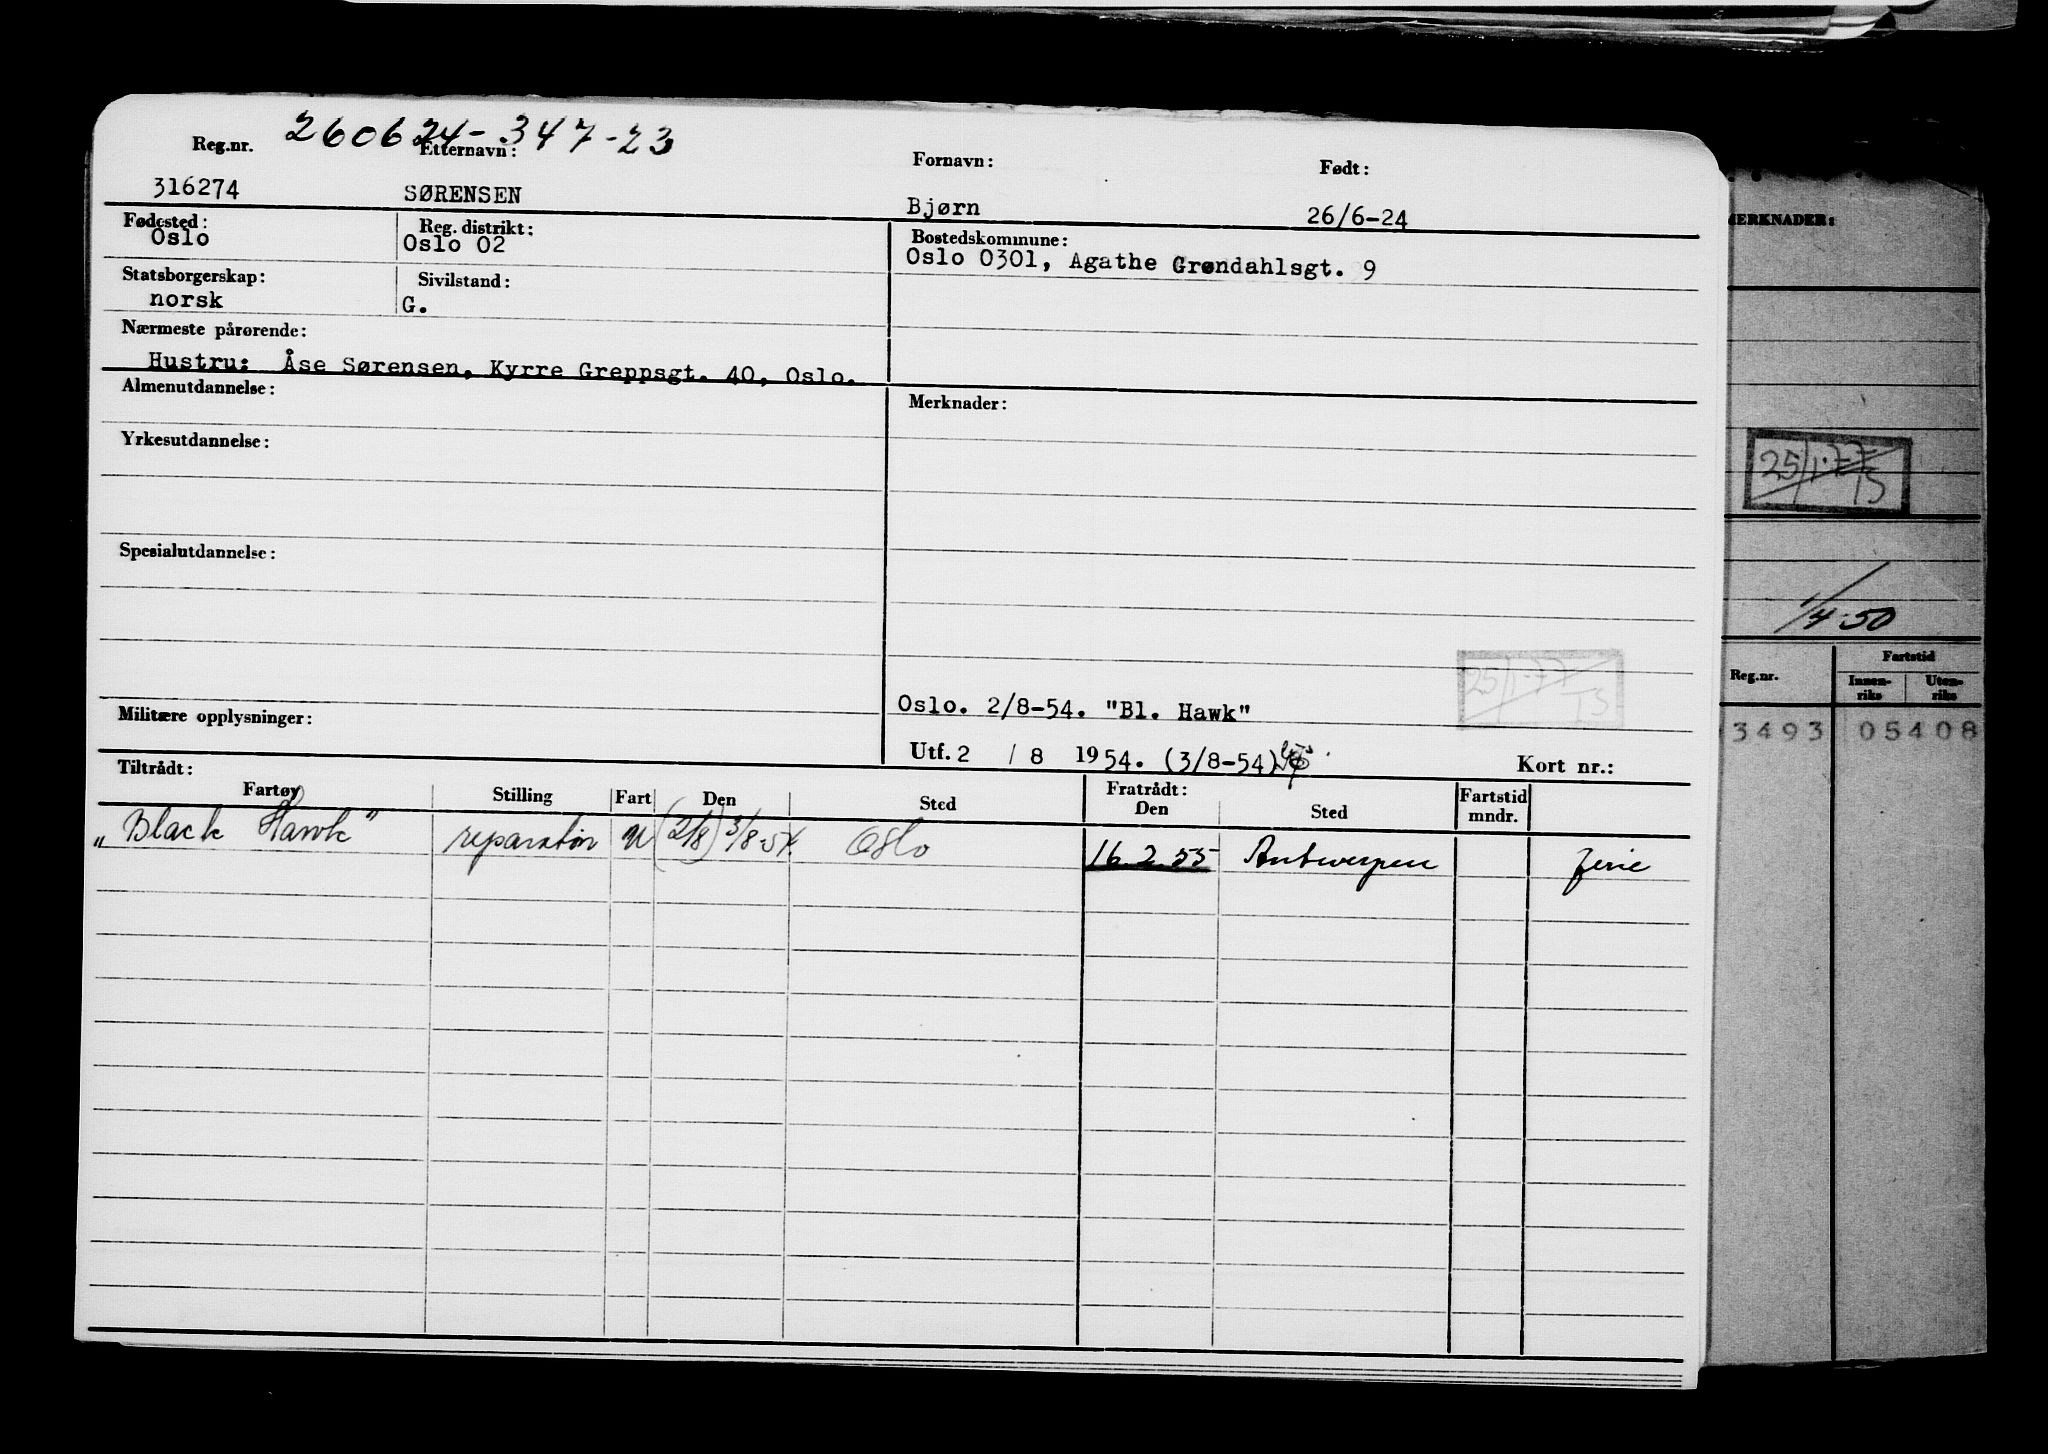 260624-347-23
Reg.nr. Etternavn: Fornavn: Født:
316274 SØRENSEN Bjørn 26/6-24
Fødested: Reg. distrikt: Bostedskommune:
Oslo Oslo 02 Oslo 0301, Agathe Grøndahlsgt. 9
Statsborgerskap: Sivilstand:
norsk G.
Nærmeste pårørende:
Hustru: Åse Sørensen, Kyrre Greppsgt. 40, Oslo.
Almenutdannelse: Merknader:
Yrkesutdannelse:
Spesialutdannelse:
25/1-77 TS
Oslo. 2/8-54. "Bl. Hawk"
Militære opplysninger:
Utf. 2 / 8 1954. (3/8-54) Kort nr.:
Tiltrådt: Fratrådt:
Fartøy Stilling Fart Den Sted Den Sted Fartstid mndr.
„Black Hawk" reparatør U (2/8) 3/8-54 Oslo 16.2.55 Antwerpen ferie
MERKNADER:
25/1-77 TS
1/4-50
Reg.nr. Fartstid
Innen-riks Uten-riks
3493 05408